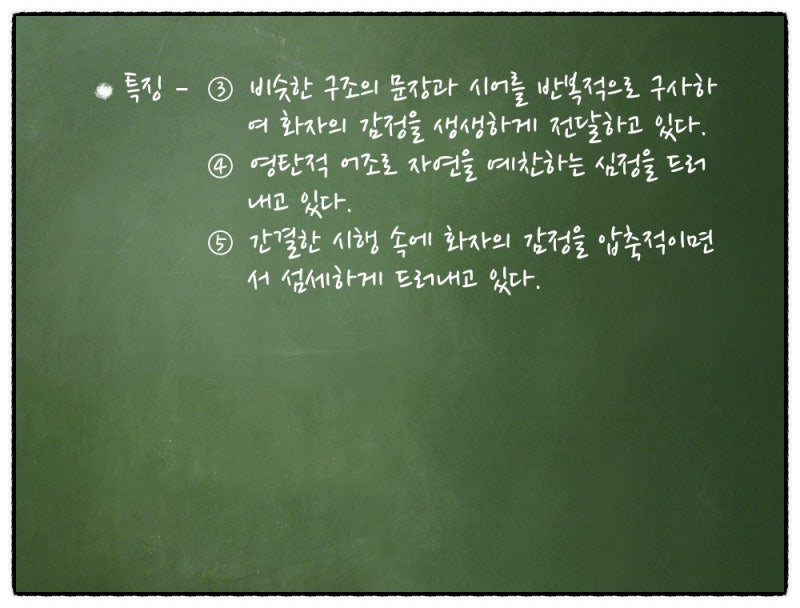 특징 - ③ 비슷한 구조의 문장과 시어를 반복적으로 구사하
여 화자의 감정을 생생하게 전달하고 있다.
④ 영탄적 어조로 자연을 예찬하는 심정을 드러
내고 있다.
⑤ 간결한 시행 속에 화자의 감정을 압축적이면
서 섬세하게 드러내고 있다.